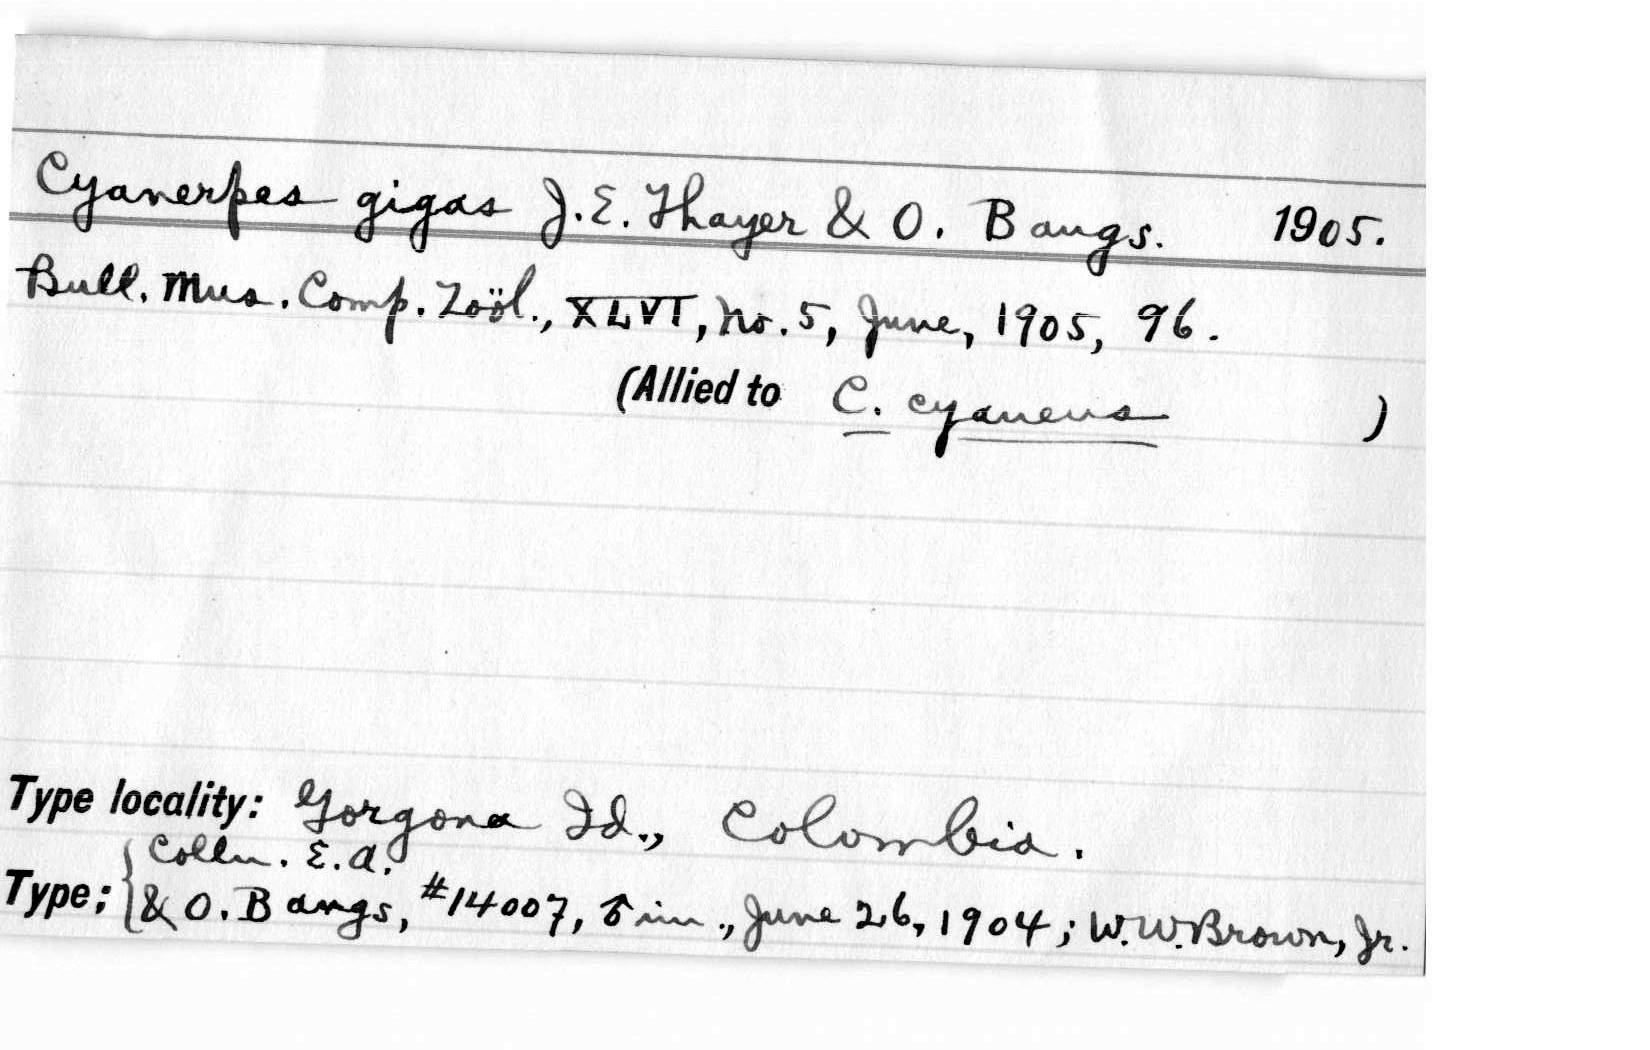 Cyanerpes gigas J. E. Thayer & O. Bangs. 1905.
Bull. Mus. Comp. Zoöl., XLVI, No. 5, June, 1905, 96.
(Allied to C. cyaneus )
Type locality: Gorgona Id., Colombia.
Colln. E. A.
Type: { & O. Bangs, #14007, ♂ im., June 26, 1904; W. W. Brown, Jr.